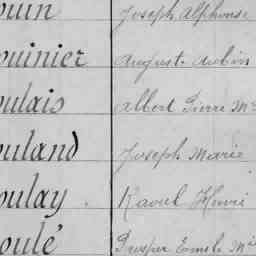 ouin Joseph Alphonse
ouinier August Aubin
oulais Albert Pierre M
ouland Joseph Marie
oulay Raoul Henri
oulé Prosper Ernest M